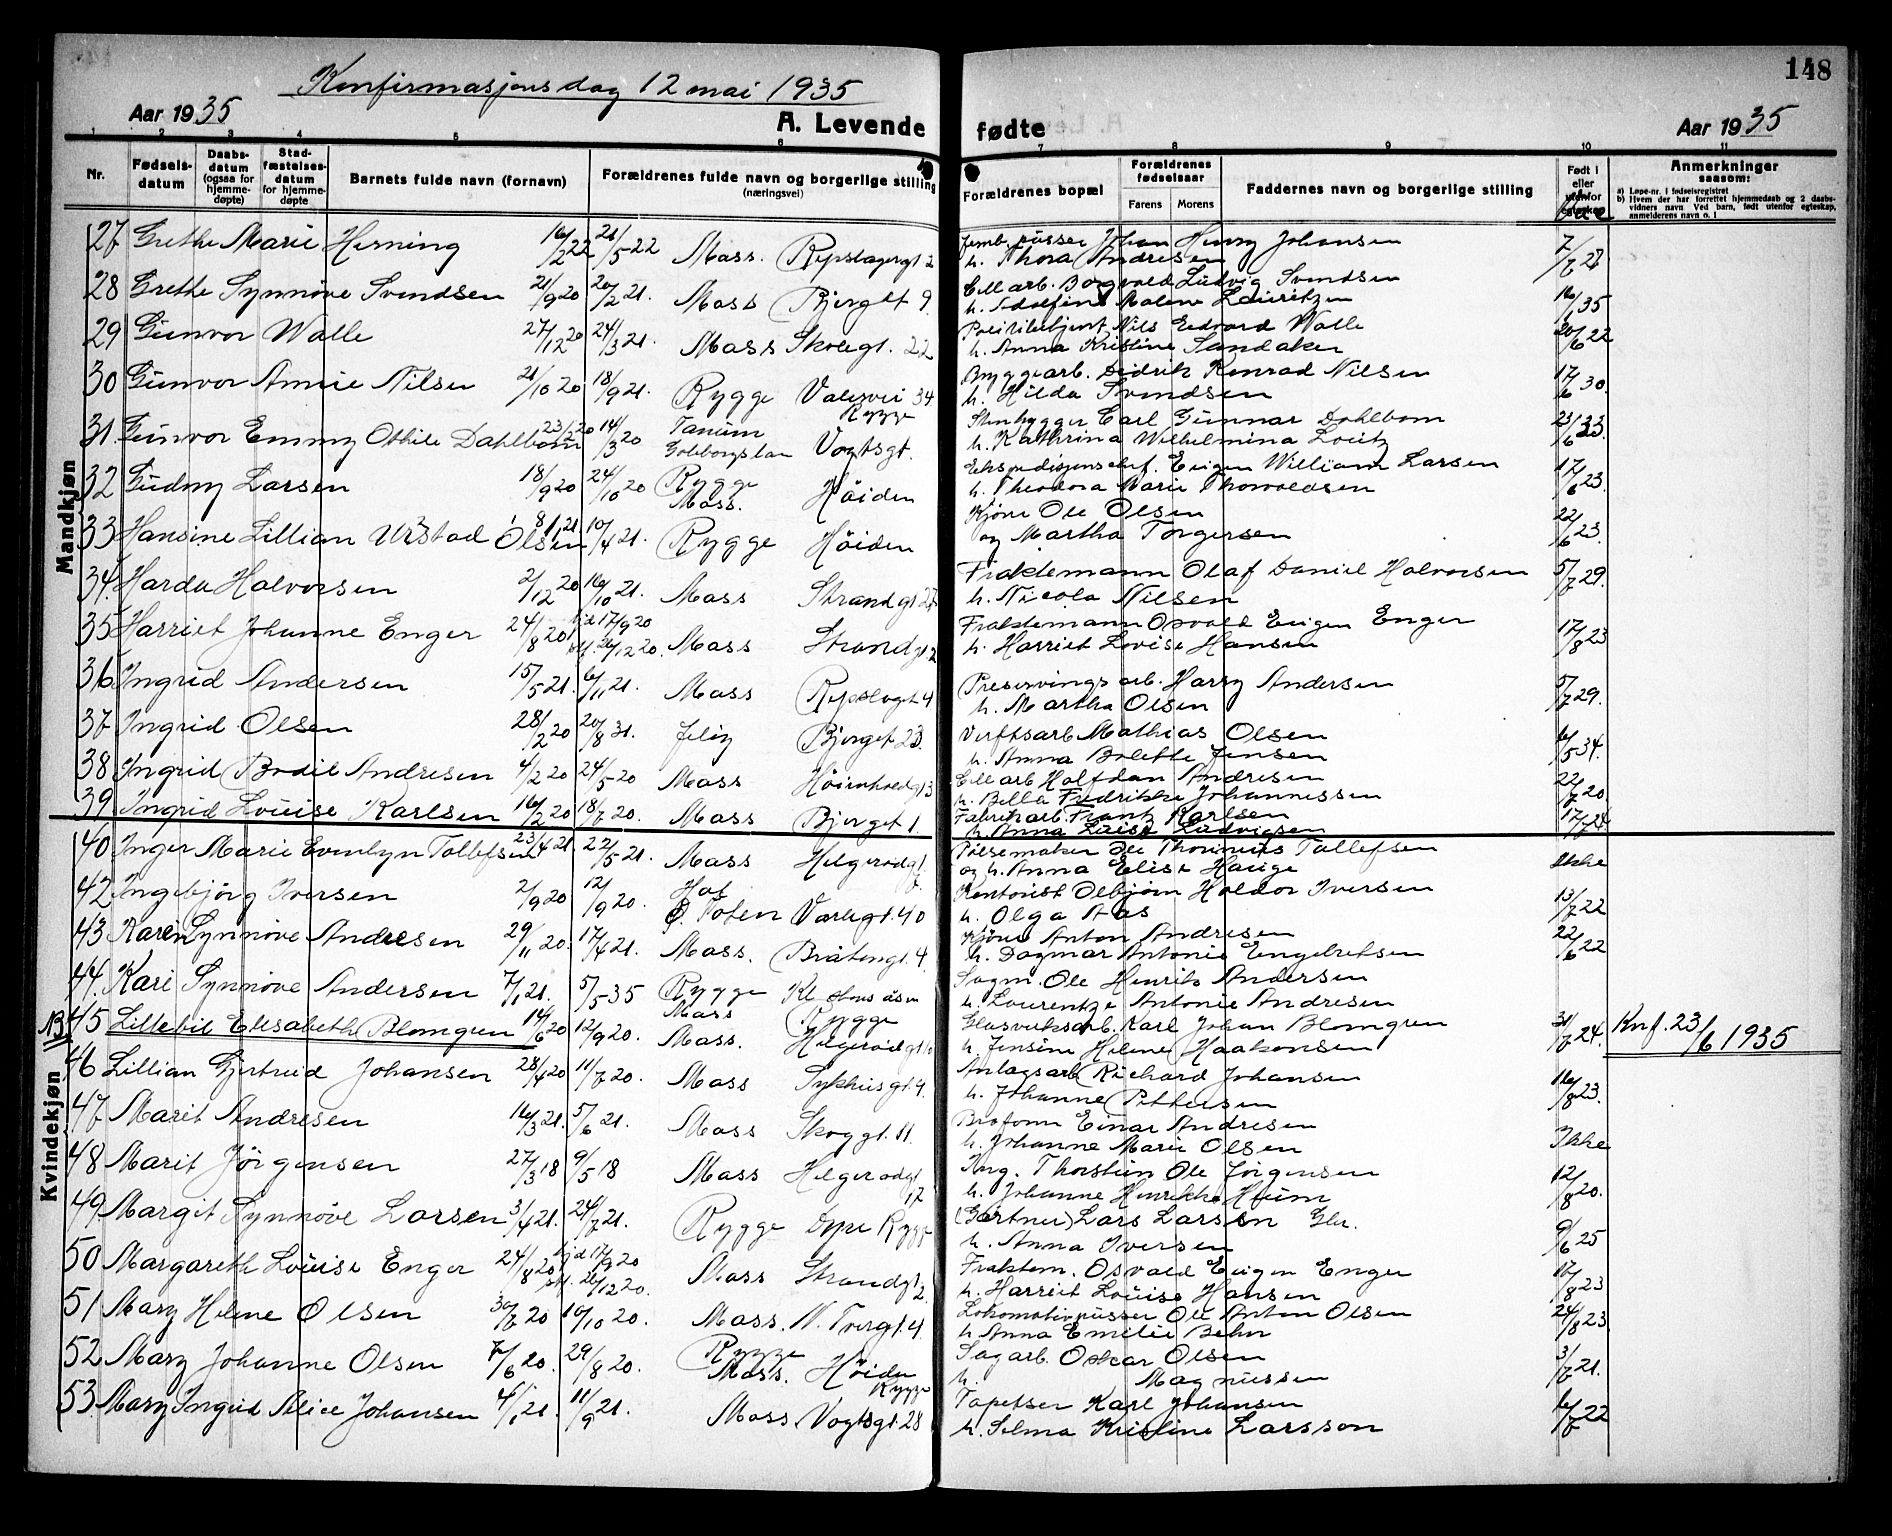 148
Konfirmasjonsdag 12 mai 1935
Aar 1935
A. Levende fødte
Aar 1935
1 2 3 4 5 6 7 8 9 10 11
Nr. Fødselsdatum Daabsdatum (ogsaa for hjemmedøpte) Stadfæstelsesdatum for hjemmedøpte Barnets fulde navn (fornavn) Forældrenes fulde navn og borgerlige stilling (næringsvei) Forældrenes bopæl Forældrenes fødselsaar Farens Morens Faddernes navn og borgerlige stilling Født i eller utenfor egteskap Anmerkninger saasom:
a) Løpe-nr. i fødselsregistret
b) Hvem der har forrettet hjemmedaab og 2 daabsvidners navn Ved barn, født utenfor egteskap, anmelderens navn o. l
Mandkjøn
27 Grethe Marie Herning 16/2 22 21/5 22 Moss. Repslagergt 2 Jernb. pusser Johan Henry Johansen 7/7 27
h. Thora Andresen
28 Grethe Synnøve Svendsen 21/9 20 20/2 21. Moss Bjerggt 9. Cell arb. Bogvald Ludvig Svendsen 16/1 35
h. Adolfine Malene Lauritzen
29 Gunvor Walle 27/12 20 24/3 21. Moss Skolegt. 22 Politibetjent Nils Edvard Walle 20/6 22
h. Anna Kristine Sandaker
30 Gunvor Annie Nilsen 21/10 20 18/9 21. Rygge Valersvei 34 Rygge Bryggearb. Didrik Konrad Nilsen 17/6 30
h. Hilda Svendsen
31. Gunvor Emmy Othile Dahlbom 23/1 20 14/3 20 Tanum Gøteborgs lan Vogtsgt. Stenhygger Carl Gunnar Dahlbom 23/6 33.
h. Kathrina Wilhelmina Loutz
32 Gudny Larsen 18/9 20 24/10 20 Rygge Moss. Høiden Ekspedisjonschef. Eugen William Larsen 17/6 23.
h. Theodora Marie Thorvaldsen
33 Hansine Lillian Urstad Olsen 8/1 21. 10/4 21. Rygge Høiden Kjøre Ole Olsen 22/6 23.
og Martha Torgersen
34 Harda Halvorsen 2/12 20 16/10 21. Moss Strandgt 27 Fraktemann Olaf Daniel Halvorsen 5/7 29.
h. Nicola Nilsen
35 Harriet Johanne Enger 24/8 20 hjd 17/9 20 stf. 26/12 20. Moss Strandgt 2 Fraktemann Osvald Eugen Enger 17/8 23
h. Harriet Lovise Hansen
36 Ingrid Andersen 15/5 21. 6/11 21. Moss Repslagt 4 Preservings arb. Harry Andersen 5/7 29.
h. Martha Olsen
37 Ingrid Olsen 28/2 20 20/8 31. Jeløy Bjerget 23. Verftsarb Mathias Olsen 6/5 34.
h. Anna Bolette Jensen
38 Ingrid Bodil Andresen 4/2 20 24/5 20 Moss Høienhaldgt 3 Cell arb Halfdan Andresen 22/7 20.
h. Bella Fredrikke Johannessen
39 Ingrid Louise Karlsen 16/2 20 18/7 20. Moss Bjerget 1. Fabrikarb. Frantz Karlsen 17/7 24
h. Anna Luise Ludvigsen
Kvindekjøn
40 Inger Marie Evenlyn Tollefsen 23/4 21 22/5 21. Moss Helgerødgt. Pølsemaker Ole Thorinus Tollefsen ikke
og h. Anna Elise Hauge
42 Ingebjørg Iversen 2/9 20 12/9 20. Hof Ø. Toten Varlegt. 40 Kontorist Asbjørn Haldor Iversen 13/7 22
h. Olga Aas
43 Karen Synnøve Andresen 29/11 20. 17/4 21. Moss. Bråtengt. 4. Kjøre Anton Andresen 22/6 22
h. Dagmar Antonie Engebretsen
44. Kari Synnøve Andersen 7/1 21. 5/5 35 Rygge Moss Rygge Sagm. Ole Henrik Andersen
h. Laurentze Antonie Andresen
NB 45 Lillebil Elisabeth Blomgren 14/6 20 12/9 20. Moss. Helgerødgt Glasverksarb. Karl Johan Blomgren 31/7 24. Knf. 23/6 1935
h. Jensine Helene Haakonsen
46 Lillian Gjertrud Johansen 28/4 20 11/7 20. Moss Sykhusgt. 4. Anlagsarb Richard Johansen 16/8 23.
h. Johanne Pettersen
47 Marit Andresen 16/3 21. 5/6 21. Moss Skoggt. 11. Brofører Einar Andresen Ikke
h. Johanne Marie Olsen
48 Marit Jörgensen 27/3 18 9/5 18 Moss Helgerødgt 17 Ing. Thorstein Ole Jörgensen 12/8 20.
h. Johanne Henrikke Heum
49. Margit Synnøve Larsen 3/4 21. 24/7 21. Rygge Dype Rygge (Gartner) Lars Larsen 9/6 25
h. Anna Iversen
50 Margareth Louise Enger 24/8 20 hjd 17/9 20 stf. 26/12 20. Moss Strandgt 2. Fraktem. Osvald Eugen Enger 17/8 23
h. Harriet Louise Hansen
51 Mary Helene Olsen 30/7 20 10/10 20. Moss. N. Tvergt. 4 Lokomotivpusser Ole Anton Olsen 24/8 23
h Anna Emilie Behn
52 Mary Johanne Olsen 7/6 20. 29/8 20. Rygge Moss. Høiden Rygge Sagarb. Oskar Olsen 3/7 21.
h. Magnussen
53. Mary Ingrid Alice Johansen 4/1 21. 11/9 21. Moss Vogtsgt. 28 Tapetser Karl Johansen 6/7 22
h. Selma Kristine Larsson